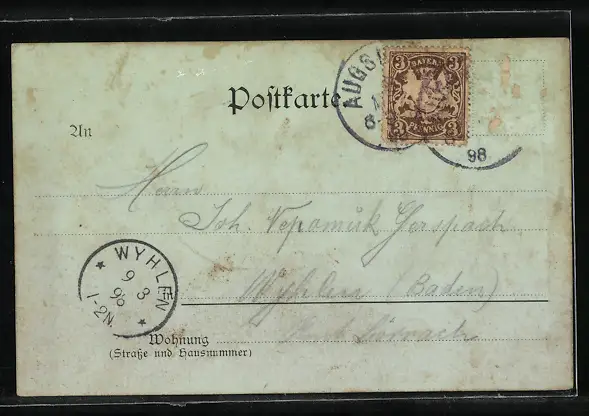 Postkarte
AUGSB
8-
98
BAYERN
3 3
3 PFENNIG 3
An
Herrn
Joh. Nepomuk Gerspach
Wyhlen (Baden)
Lörrach
Wohnung
(Straße und Hausnummer)
* WYHLEN *
9 3
98
1-2N.